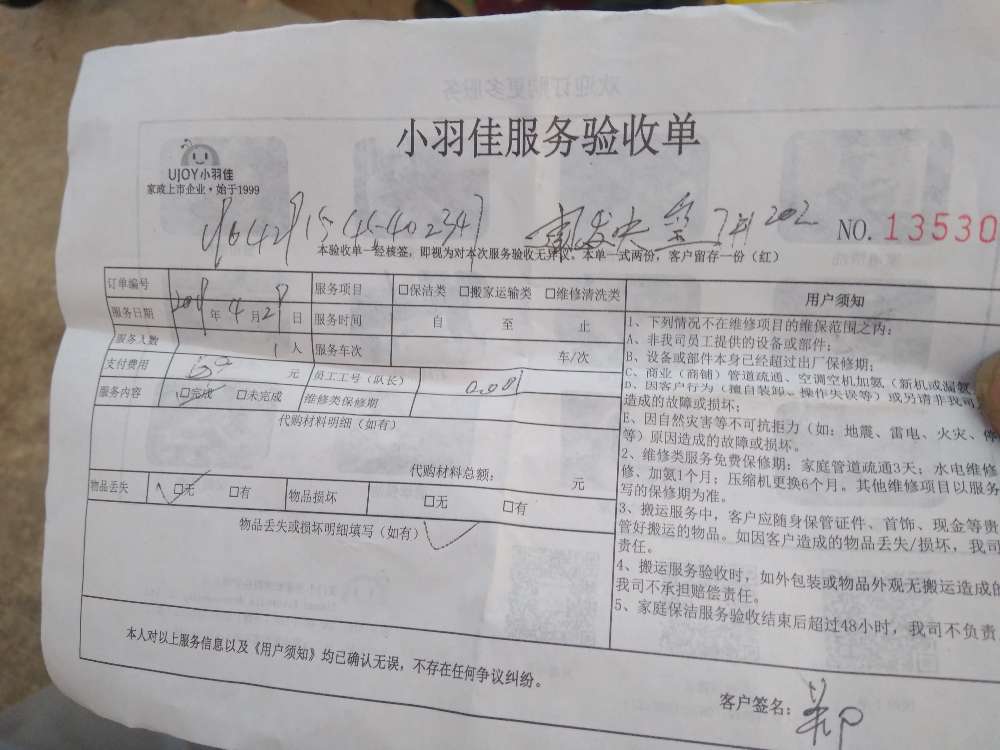 欢迎订购更多服务
小羽佳服务验收单
UJOY小羽佳
家政上市企业·始于1999
NO. 13530
本验收单一经核签，即视为对本次服务验收无异议。本单一式两份，客户留存一份（红）
订单编号
服务项目 □保洁类 □搬家运输类 □维修清洗类
服务日期 年 4 月 2 日
服务时间 自 至 止
服务人数 1 人
服务车次 车/次
支付费用 元
员工工号（队长） 0.081
服务内容 □完成 □未完成
维修类保修期
代购材料明细（如有）
代购材料总额： 元
物品丢失 □无 □有
物品损坏 □无 □有
物品丢失或损坏明细填写（如有）
用户须知
1、下列情况不在维修项目的维保范围之内：
A、非我司员工提供的设备或部件；
B、设备或部件本身已经超过出厂保修期；
C、商业（商铺）管道疏通、空调空机加氨（新机或漏氨
D、因客户行为（擅自装卸、操作失误等）或另请非我司
造成的故障或损坏；
E、因自然灾害等不可抗拒力（如：地震、雷电、火灾、停
等）原因造成的故障或损坏。
2、维修类服务免费保修期：家庭管道疏通3天；水电维修
修、加氨1个月；压缩机更换6个月。其他维修项目以服务
写的保修期为准。
3、搬运服务中，客户应随身保管证件、首饰、现金等贵
管好搬运的物品。如因客户造成的物品丢失/损坏，我司
责任。
4、搬运服务验收时，如外包装或物品外观无搬运造成的
我司不承担赔偿责任。
5、家庭保洁服务验收结束后超过48小时，我司不负责
本人对以上服务信息以及《用户须知》均已确认无误，不存在任何争议纠纷。
客户签名：